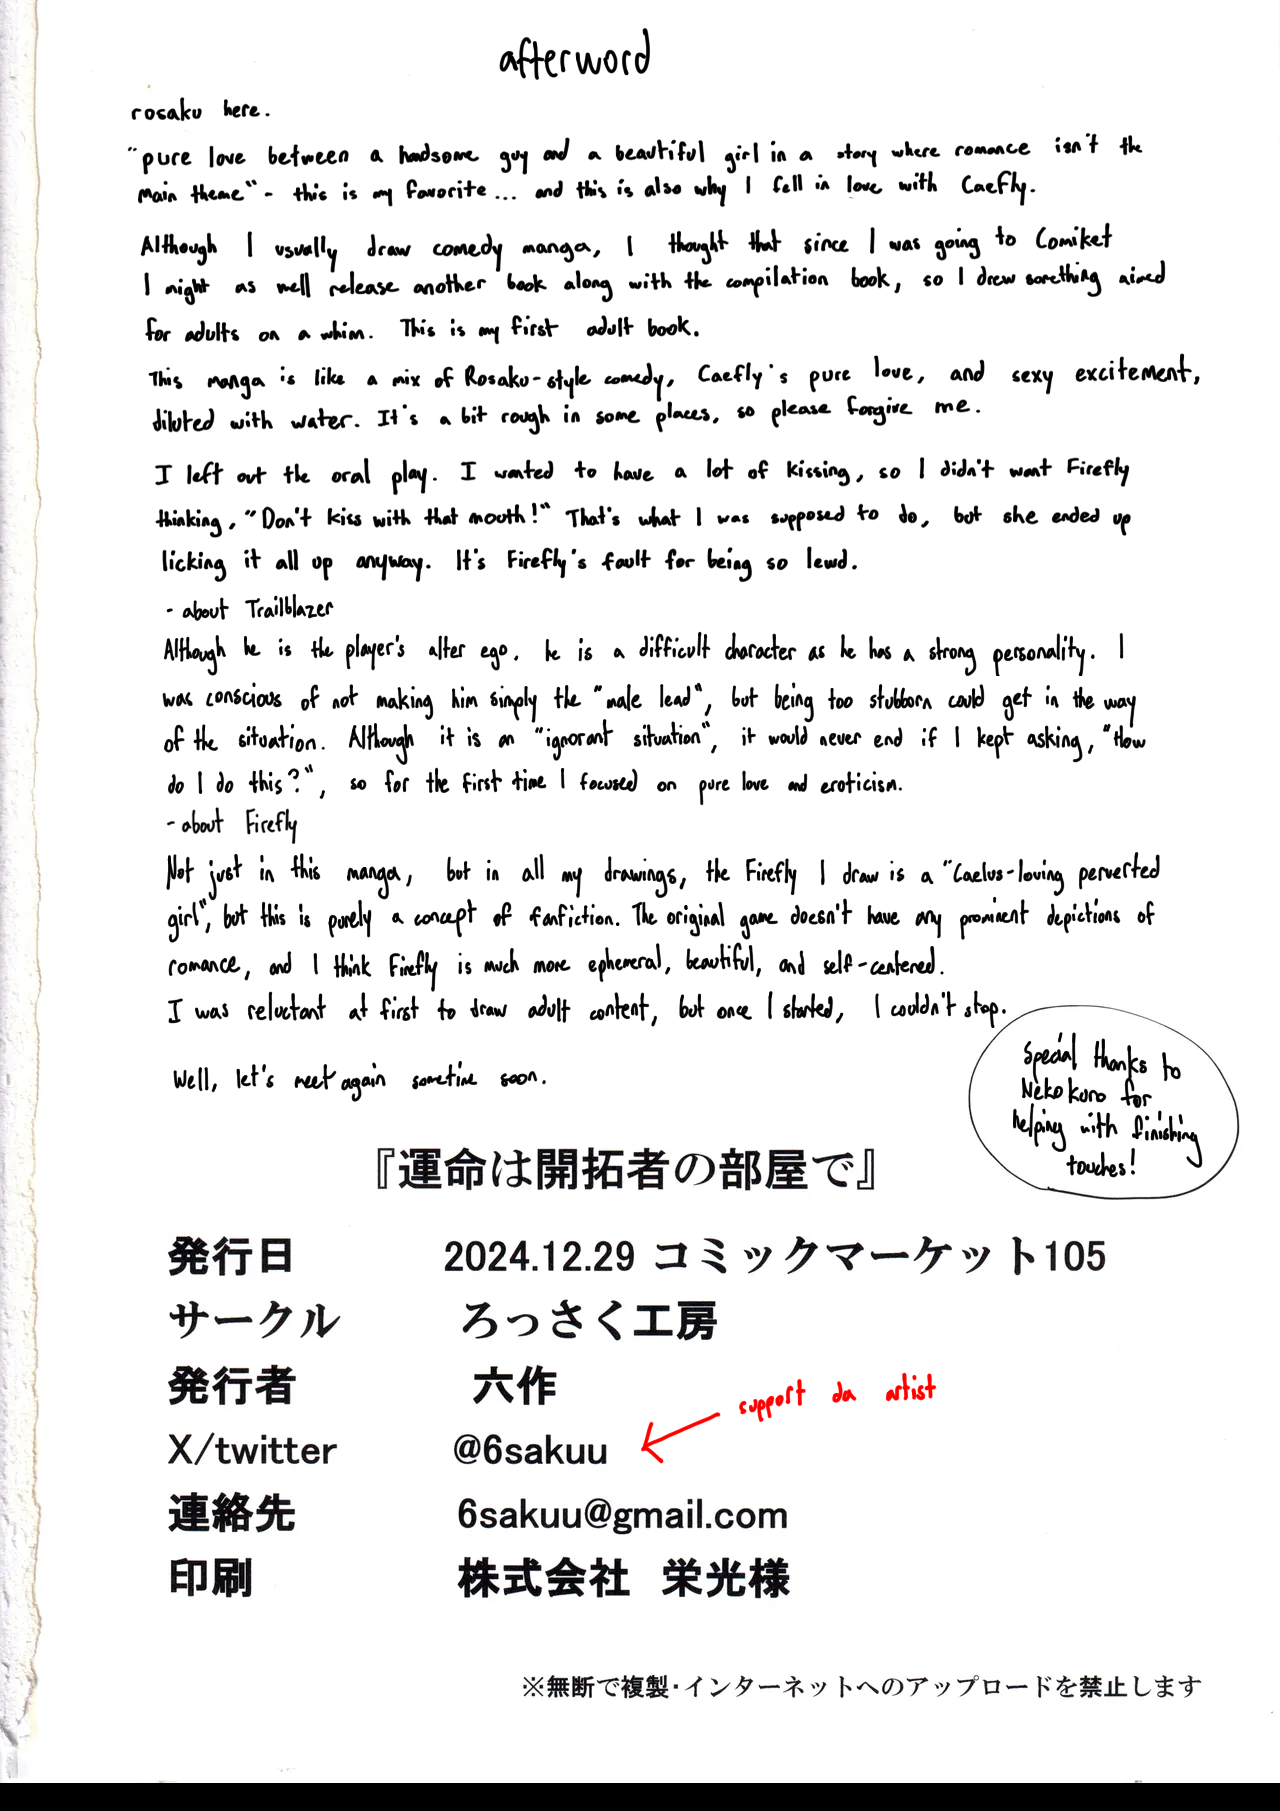 afterword
rosaku here.
"pure love between a handsome guy and a beautiful girl in a story where romance isn't the
main theme" - this is my favorite... and this is also why I fell in love with Caefly.
Although I usually draw comedy manga, I thought that since I was going to Comiket
I might as well release another book along with the compilation book, so I drew something aimed
for adults on a whim. This is my first adult book.
This manga is like a mix of Rosaku-style comedy, Caefly's pure love, and sexy excitement,
diluted with water. It's a bit rough in some places, so please forgive me.
I left out the oral play. I wanted to have a lot of kissing, so I didn't want Firefly
thinking, "Don't kiss with that mouth!" That's what I was supposed to do, but she ended up
licking it all up anyway. It's Firefly's fault for being so lewd.
- about Trailblazer
Although he is the player's alter ego, he is a difficult character as he has a strong personality. I
was conscious of not making him simply the "male lead", but being too stubborn could get in the way
of the situation. Although it is an "ignorant situation", it would never end if I kept asking, "How
do I do this?", so for the first time I focused on pure love and eroticism.
- about Firefly
Not just in this manga, but in all my drawings, the Firefly I draw is a "Caelus-loving perverted
girl", but this is purely a concept of fanfiction. The original game doesn't have any prominent depictions of
romance, and I think Firefly is much more ephemeral, beautiful, and self-centered.
I was reluctant at first to draw adult content, but once I started, I couldn't stop.
Well, let's meet again sometime soon.
Special thanks to
Nekokuro for
helping with finishing
touches!
『運命は開拓者の部屋で』
発行日 2024.12.29 コミックマーケット105
サークル ろっさく工房
発行者 六作
support da artist
X/twitter @6sakuu
連絡先 6sakuu@gmail.com
印刷 株式会社 栄光様
※無断で複製・インターネットへのアップロードを禁止します